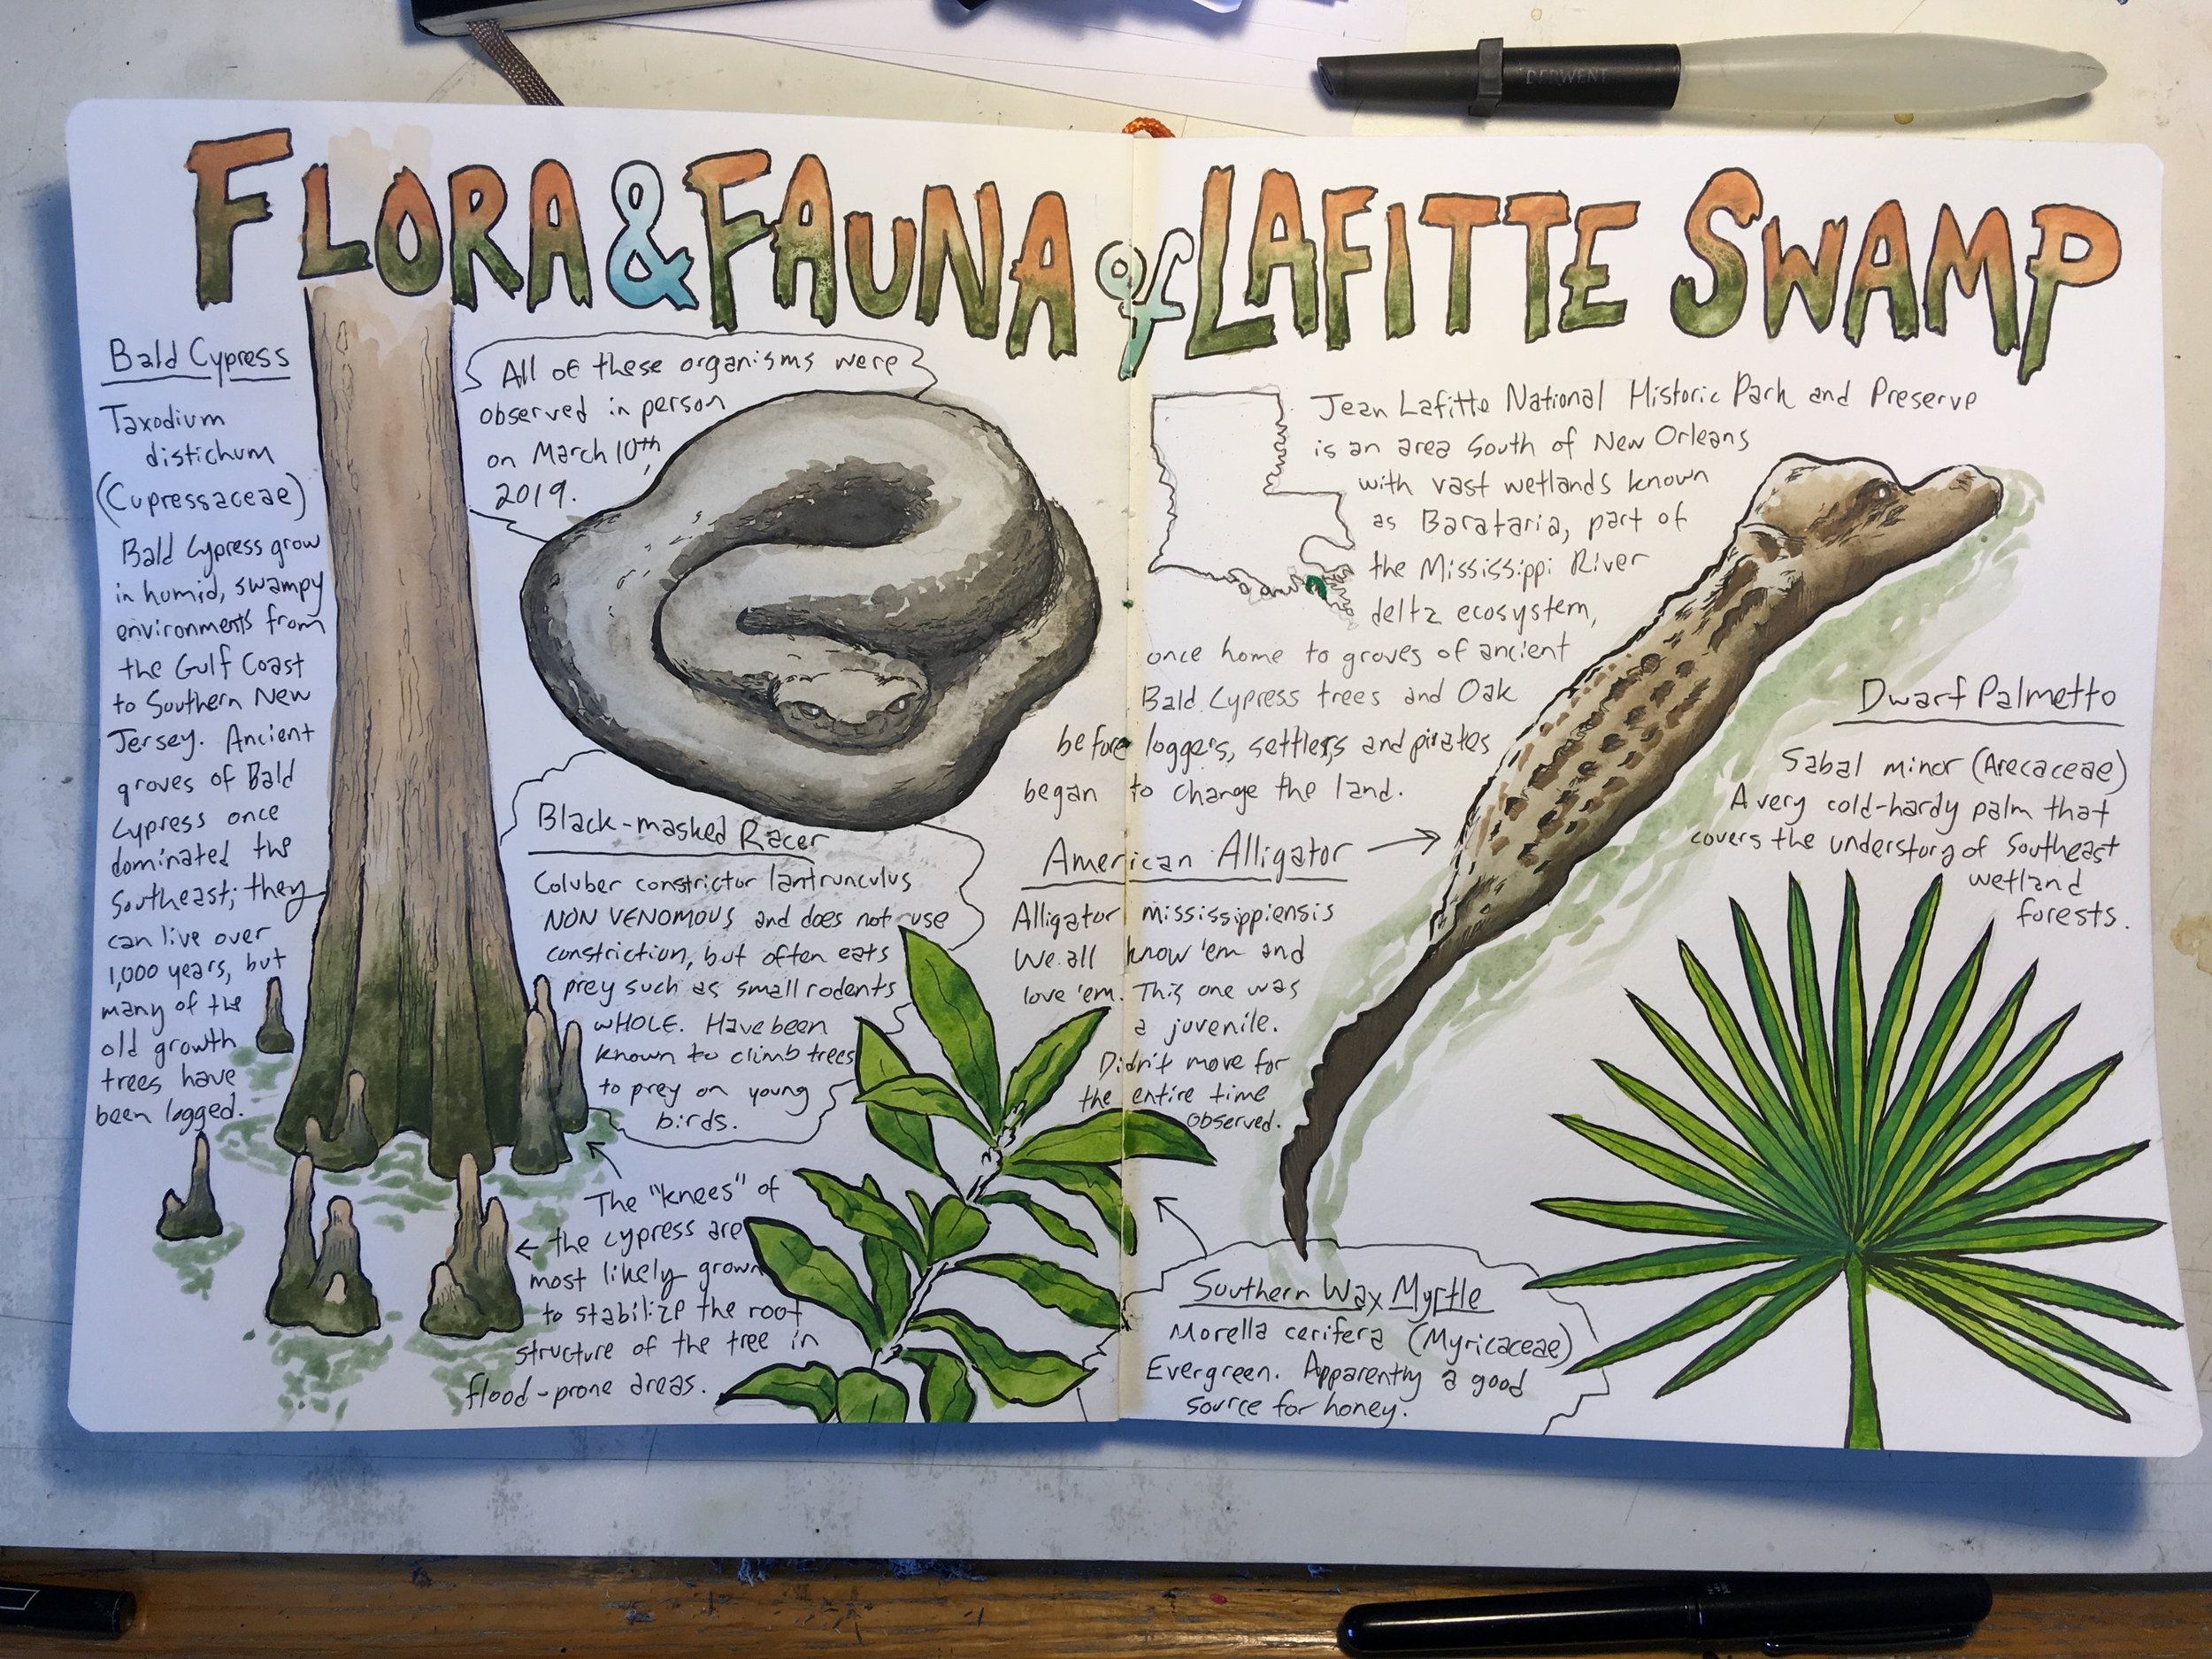 DERWENT
FLORA & FAUNA of LAFITTE SWAMP
Bald Cypress
Taxodium
distichum
(Cupressaceae)
Bald Cypress grow
in humid, swampy
environments from
the Gulf Coast
to Southern New
Jersey. Ancient
groves of Bald
Cypress once
dominated the
Southeast; they
can live over
1,000 years, but
many of the
old growth
trees have
been logged.
All of these organisms were
observed in person
on March 10th,
2019.
Black-masked Racer
Coluber constrictor lantrunculus
NON VENOMOUS and does not use
constriction, but often eats
prey such as small rodents
WHOLE. Have been
known to climb trees
to prey on young
birds.
The "knees" of
the cypress are
most likely grown
to stabilize the root
structure of the tree in
flood-prone areas.
Jean Lafitte National Historic Park and Preserve
is an area South of New Orleans
with vast wetlands known
as Barataria, part of
the Mississippi River
delta ecosystem,
once home to groves of ancient
Bald Cypress trees and Oak
before loggers, settlers and pirates
began to change the land.
American Alligator
Alligator mississippiensis
We all know 'em and
love 'em. This one was
a juvenile.
Didn't move for
the entire time
observed.
Dwarf Palmetto
Sabal minor (Arecaceae)
A very cold-hardy palm that
covers the understory of Southeast
wetland
forests.
Southern Wax Myrtle
Morella cerifera (Myricaceae)
Evergreen. Apparently a good
source for honey.